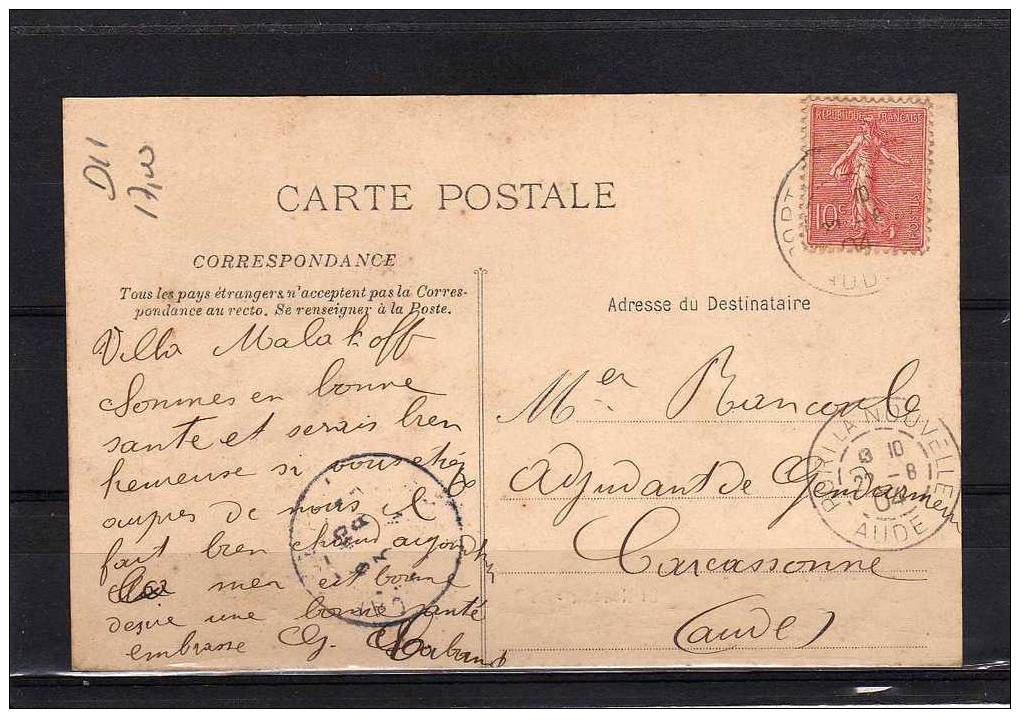 D11
17,00
REPUBLIQUE FRANÇAISE
10c
CARTE POSTALE
CORRESPONDANCE
Tous les pays étrangers n'acceptent pas la Corres-
pondance au recto. Se renseigner à la Poste.
Adresse du Destinataire
Villa Malakoff
Sommes en bonne
sante et serais bien
heureuse si vous étiéz
aupres de nous il
fait bien chaud aujourdh
La mer est bonne
desire une bonne santé
embrasse G.
Mer Rancoule
Adjudant de Gendarmerie
Carcassonne
(aude)
PORT LA NOUVELLE
10
8
04
AUDE